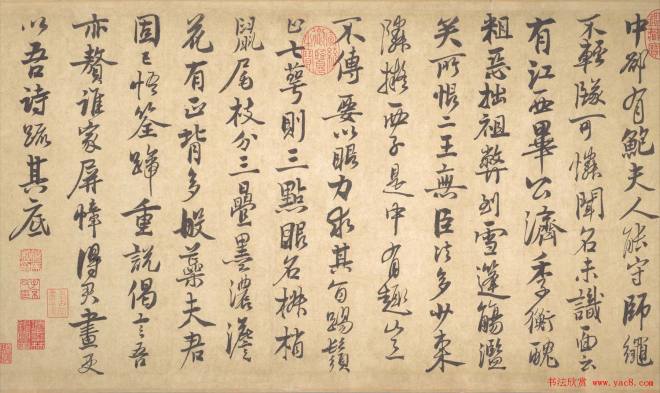 中却有鮑夫人能守師繩
不輕墜可憐聞名未識面云
有江西畢公濟季衡醜
粗惡拙祖弊到雪蓬觴濫
矣所恨二王無臣法多少東
鄰擬西子是中有趣豈
不傳要以眼力求其旨踢鬚
止七萼則三點眼名椒梢
鼠尾枝分三疊墨濃澹
花有正背多般蘂夫君
固已悟筌蹄重說偈言吾
亦贅誰家屏幛得君畫更
以吾詩疏其底
书法欣赏 www.yac8.com